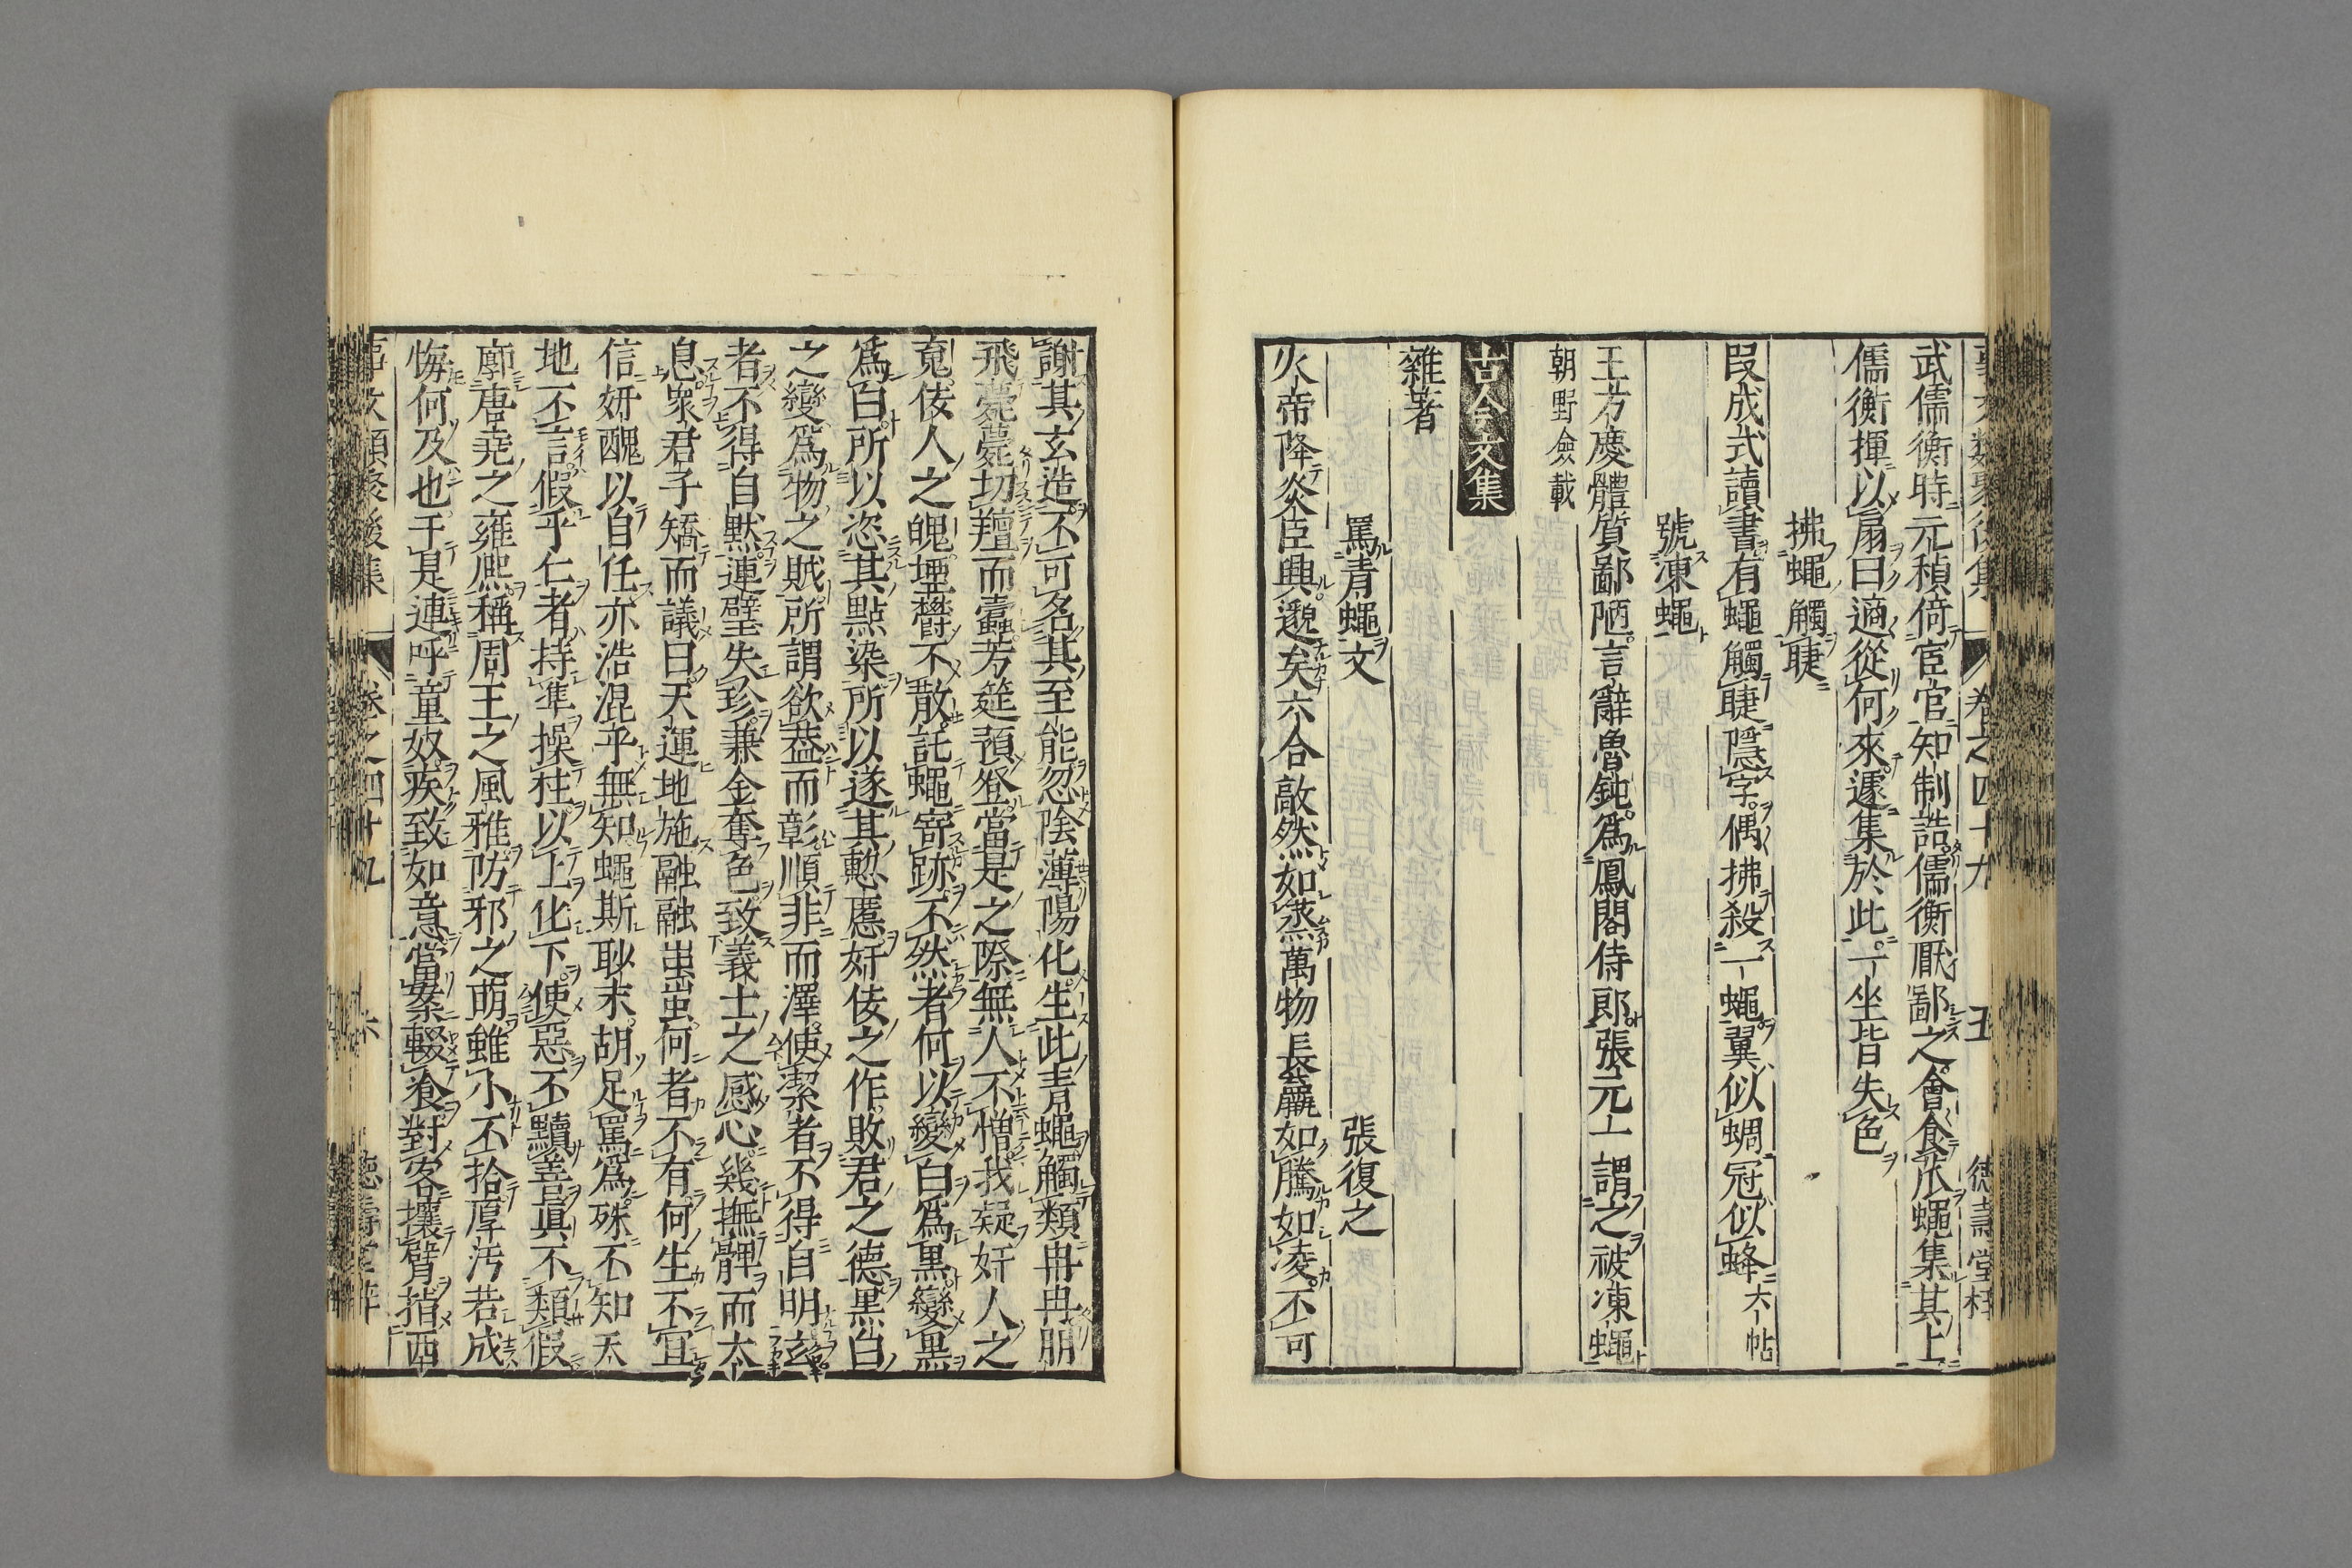 武儒衡時元稹倚宦官知制誥儒衡厭鄙之會食爪蠅集其上
儒衡揮以扇曰適從何來遽集於此一坐皆失色
拂蠅觸睫
段成式讀書有蠅觸睫隱字偶拂殺一蠅翼似蜩冠似蜂六帖
號凍蠅
王方慶體質鄙陋言辭魯鈍爲鳳閣侍郎張元一謂之被凍蠅
朝野僉載
古今文集
雜著
罵青蠅文 張復之
火帝降炎臣興邈矣六合敵然如蒸萬物長羸如騰如凌不可
謝其玄造不可名其至能忍陰薄陽化生此青蠅觸類冉冉朋
飛薨薨切羶而蠹芳筵預登當是之際無人不憎我疑奸人之
䰟佞人之魄堙欝不散託蠅寄跡不然者何以變白爲黑變黑
爲白所以恣其點染所以遂其愸慝奸佞之作敗君之德黑白
之變爲物之賊所謂欲葢而彰順非而澤使潔者不得自明玄
者不得自默連璧失珍兼金奪色致義士之感心幾撫髀而太
息衆君子矯而議曰天運地施融融蚩蚩何者不有何生不宜
信妍醜以自任亦浩混乎無知蠅斯耿末胡足罵爲殊不知天
地不言假乎仁者持準操柱以上化下使惡不黷善眞不類假
廓唐堯之雍熈稱周王之風雅防邪之萌雖小不拾厚汚若成
悔何及也于是連呼童奴疾致如意當案輟飡對客攘臂揹西
卷之四十九
五